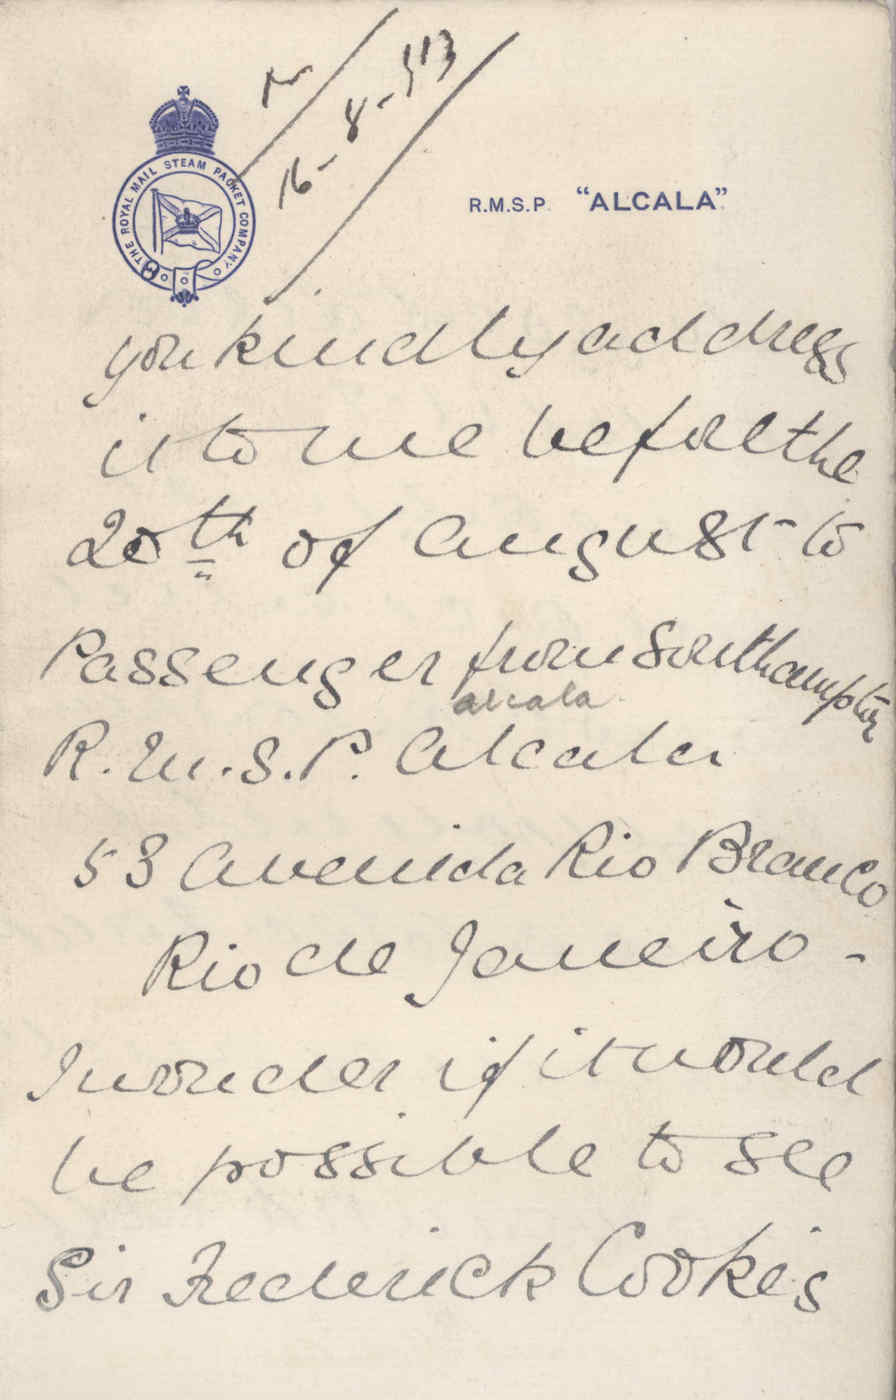 16-8-913
THE ROYAL MAIL STEAM PACKET COMPANY
R.M.S.P. "ALCALA"
you kindly address
it to me before the
20th of August to
Passenger from Southampton
alcala
R.M.S.P. Alcala
53 Avenida Rio Branco
Rio de Janeiro -
I wonder if it would
be possible to see
Sir Frederick Cooke's